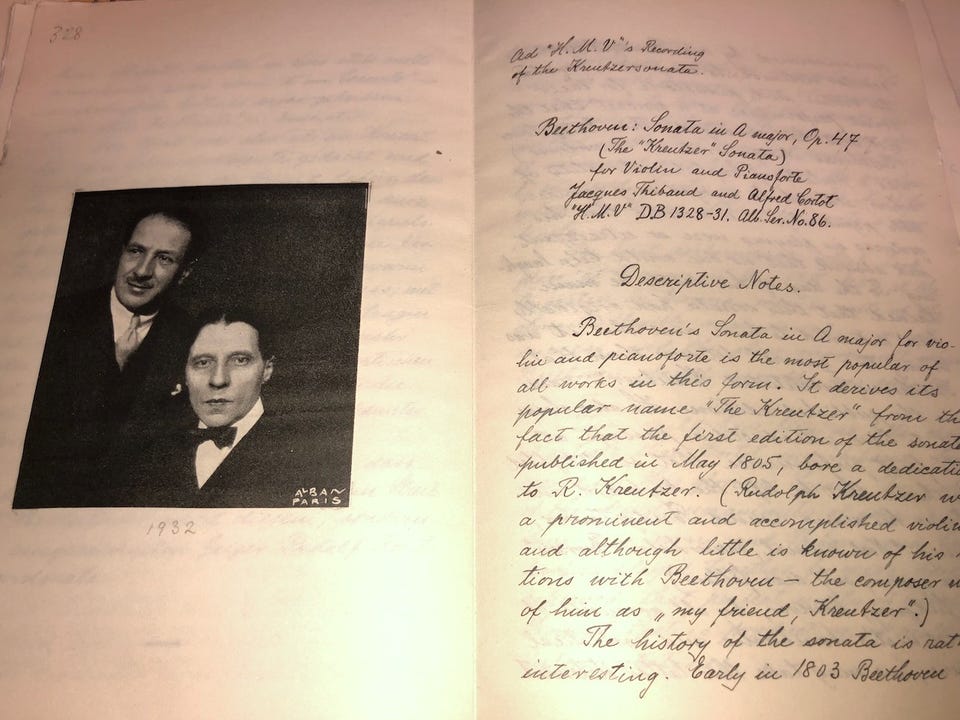 328
ALBAN
PARIS
1932
Ad "H.M.V"'s Recording
of the Kreutzersonata.
Beethoven: Sonata in A major, Op. 47
(The "Kreutzer" Sonata)
for Violin and Pianoforte
Jacques Thibaud and Alfred Cortot
"H.M.V" DB 1328-31. Alb. Ser. No. 86.
Descriptive Notes.
Beethoven's Sonata in A major for vio-
lin and pianoforte is the most popular of
all works in this form. It derives its
popular name "The Kreutzer" from th
fact that the first edition of the sonat
published in May 1805, bore a dedicati
to R. Kreutzer. (Rudolph Kreutzer w
a prominent and accomplished violin
and although little is known of his
tions with Beethoven – the composer w
of him as „my friend, Kreutzer".)
The history of the sonata is rat
interesting. Early in 1803 Beethoven